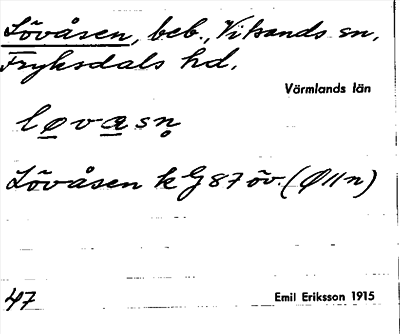 Lövåsen, beb., Vitsands sn,
Fryksdals hd.
Värmlands län
løvasn̥
Lövåsen k G 87 öv. (Ø 11 n)
47
Emil Eriksson 1915